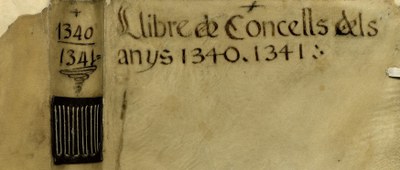 1340
1341
Llibre de Concells dels
anys 1340. 1341: